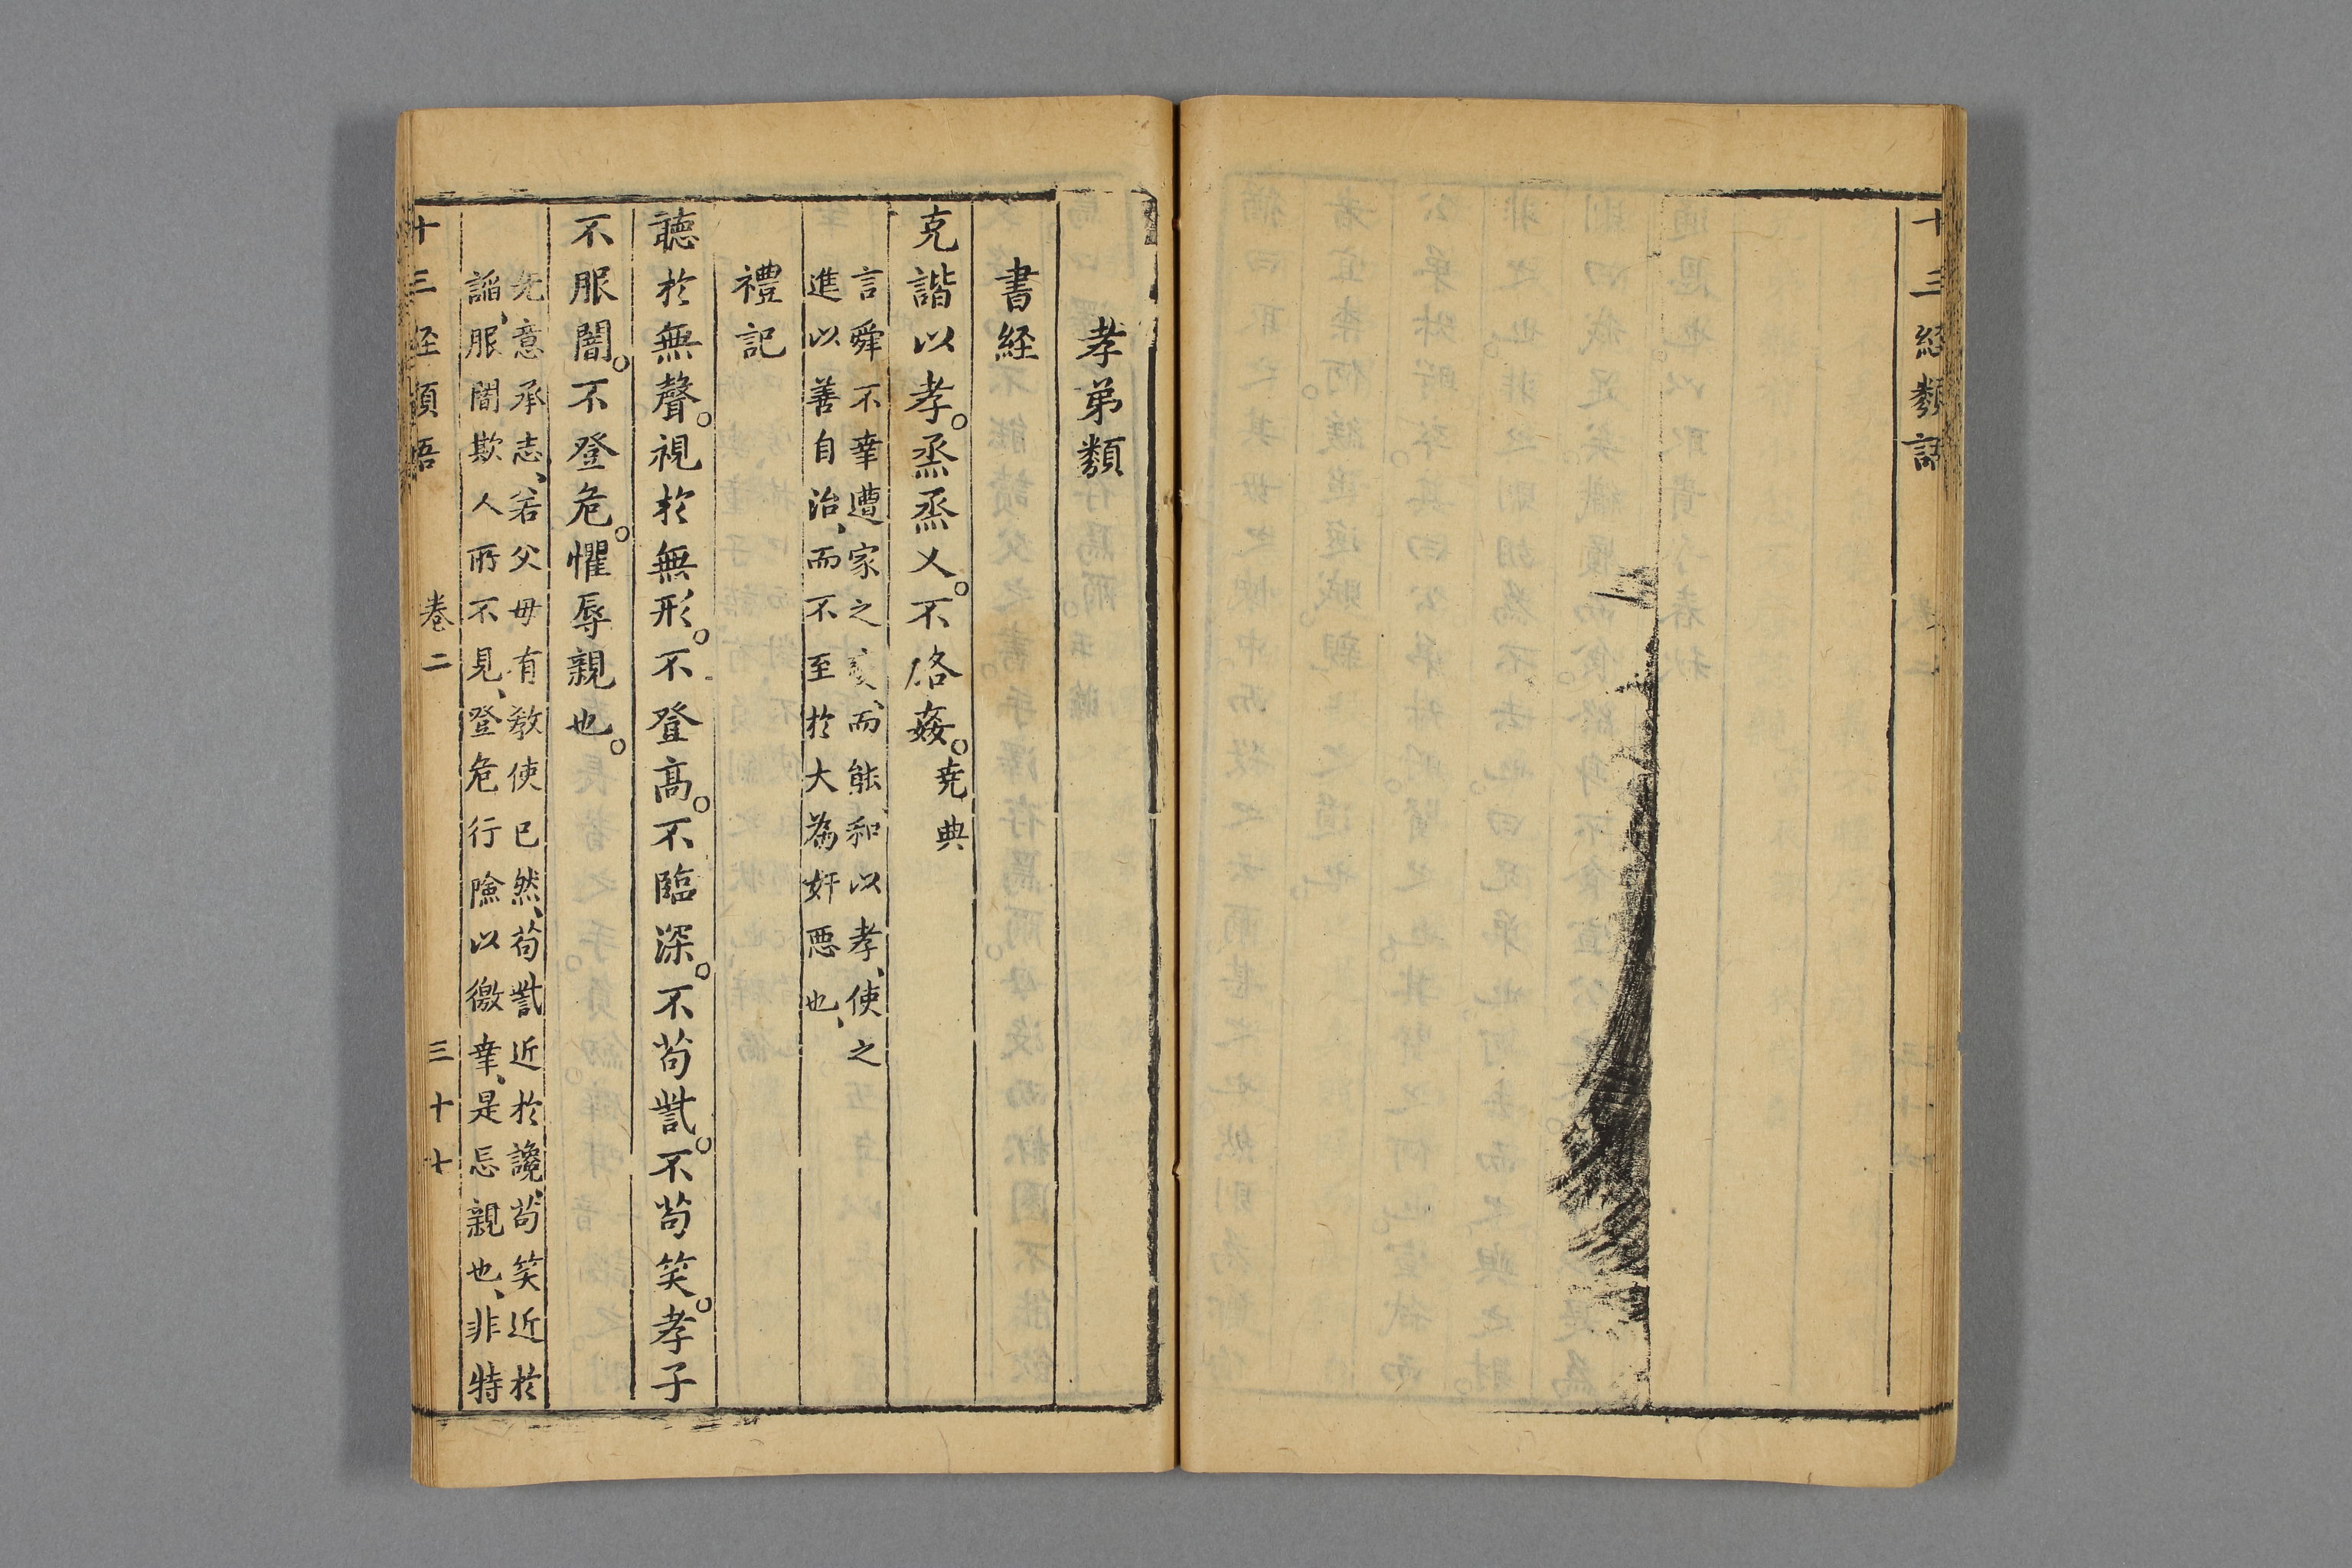 十三經類語
孝弟類
書経
克諧以孝。烝烝乂。不格姦。堯典
言舜不幸遭家之變、而能和以孝、使之
進以善自治、而不至於大為奸惡也、
禮記
聽於無聲。視於無形。不登高。不臨深。不苟訾。不苟笑。孝子
不服闇。不登危。懼辱親也。
先意承志、若父母有教使已然、苟訾近於讒、苟笑近於
謟、服闇欺人所不見、登危行險以徼幸、是忘親也、非特
十三經類語 卷二 三十七